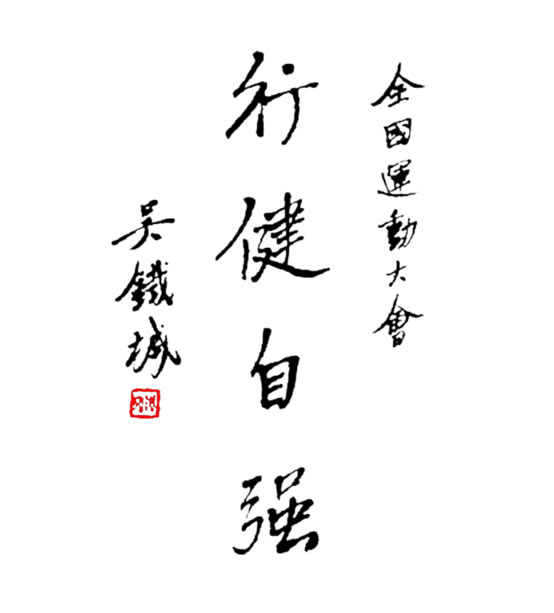 全國運動大會
行健自强
吳鐵城